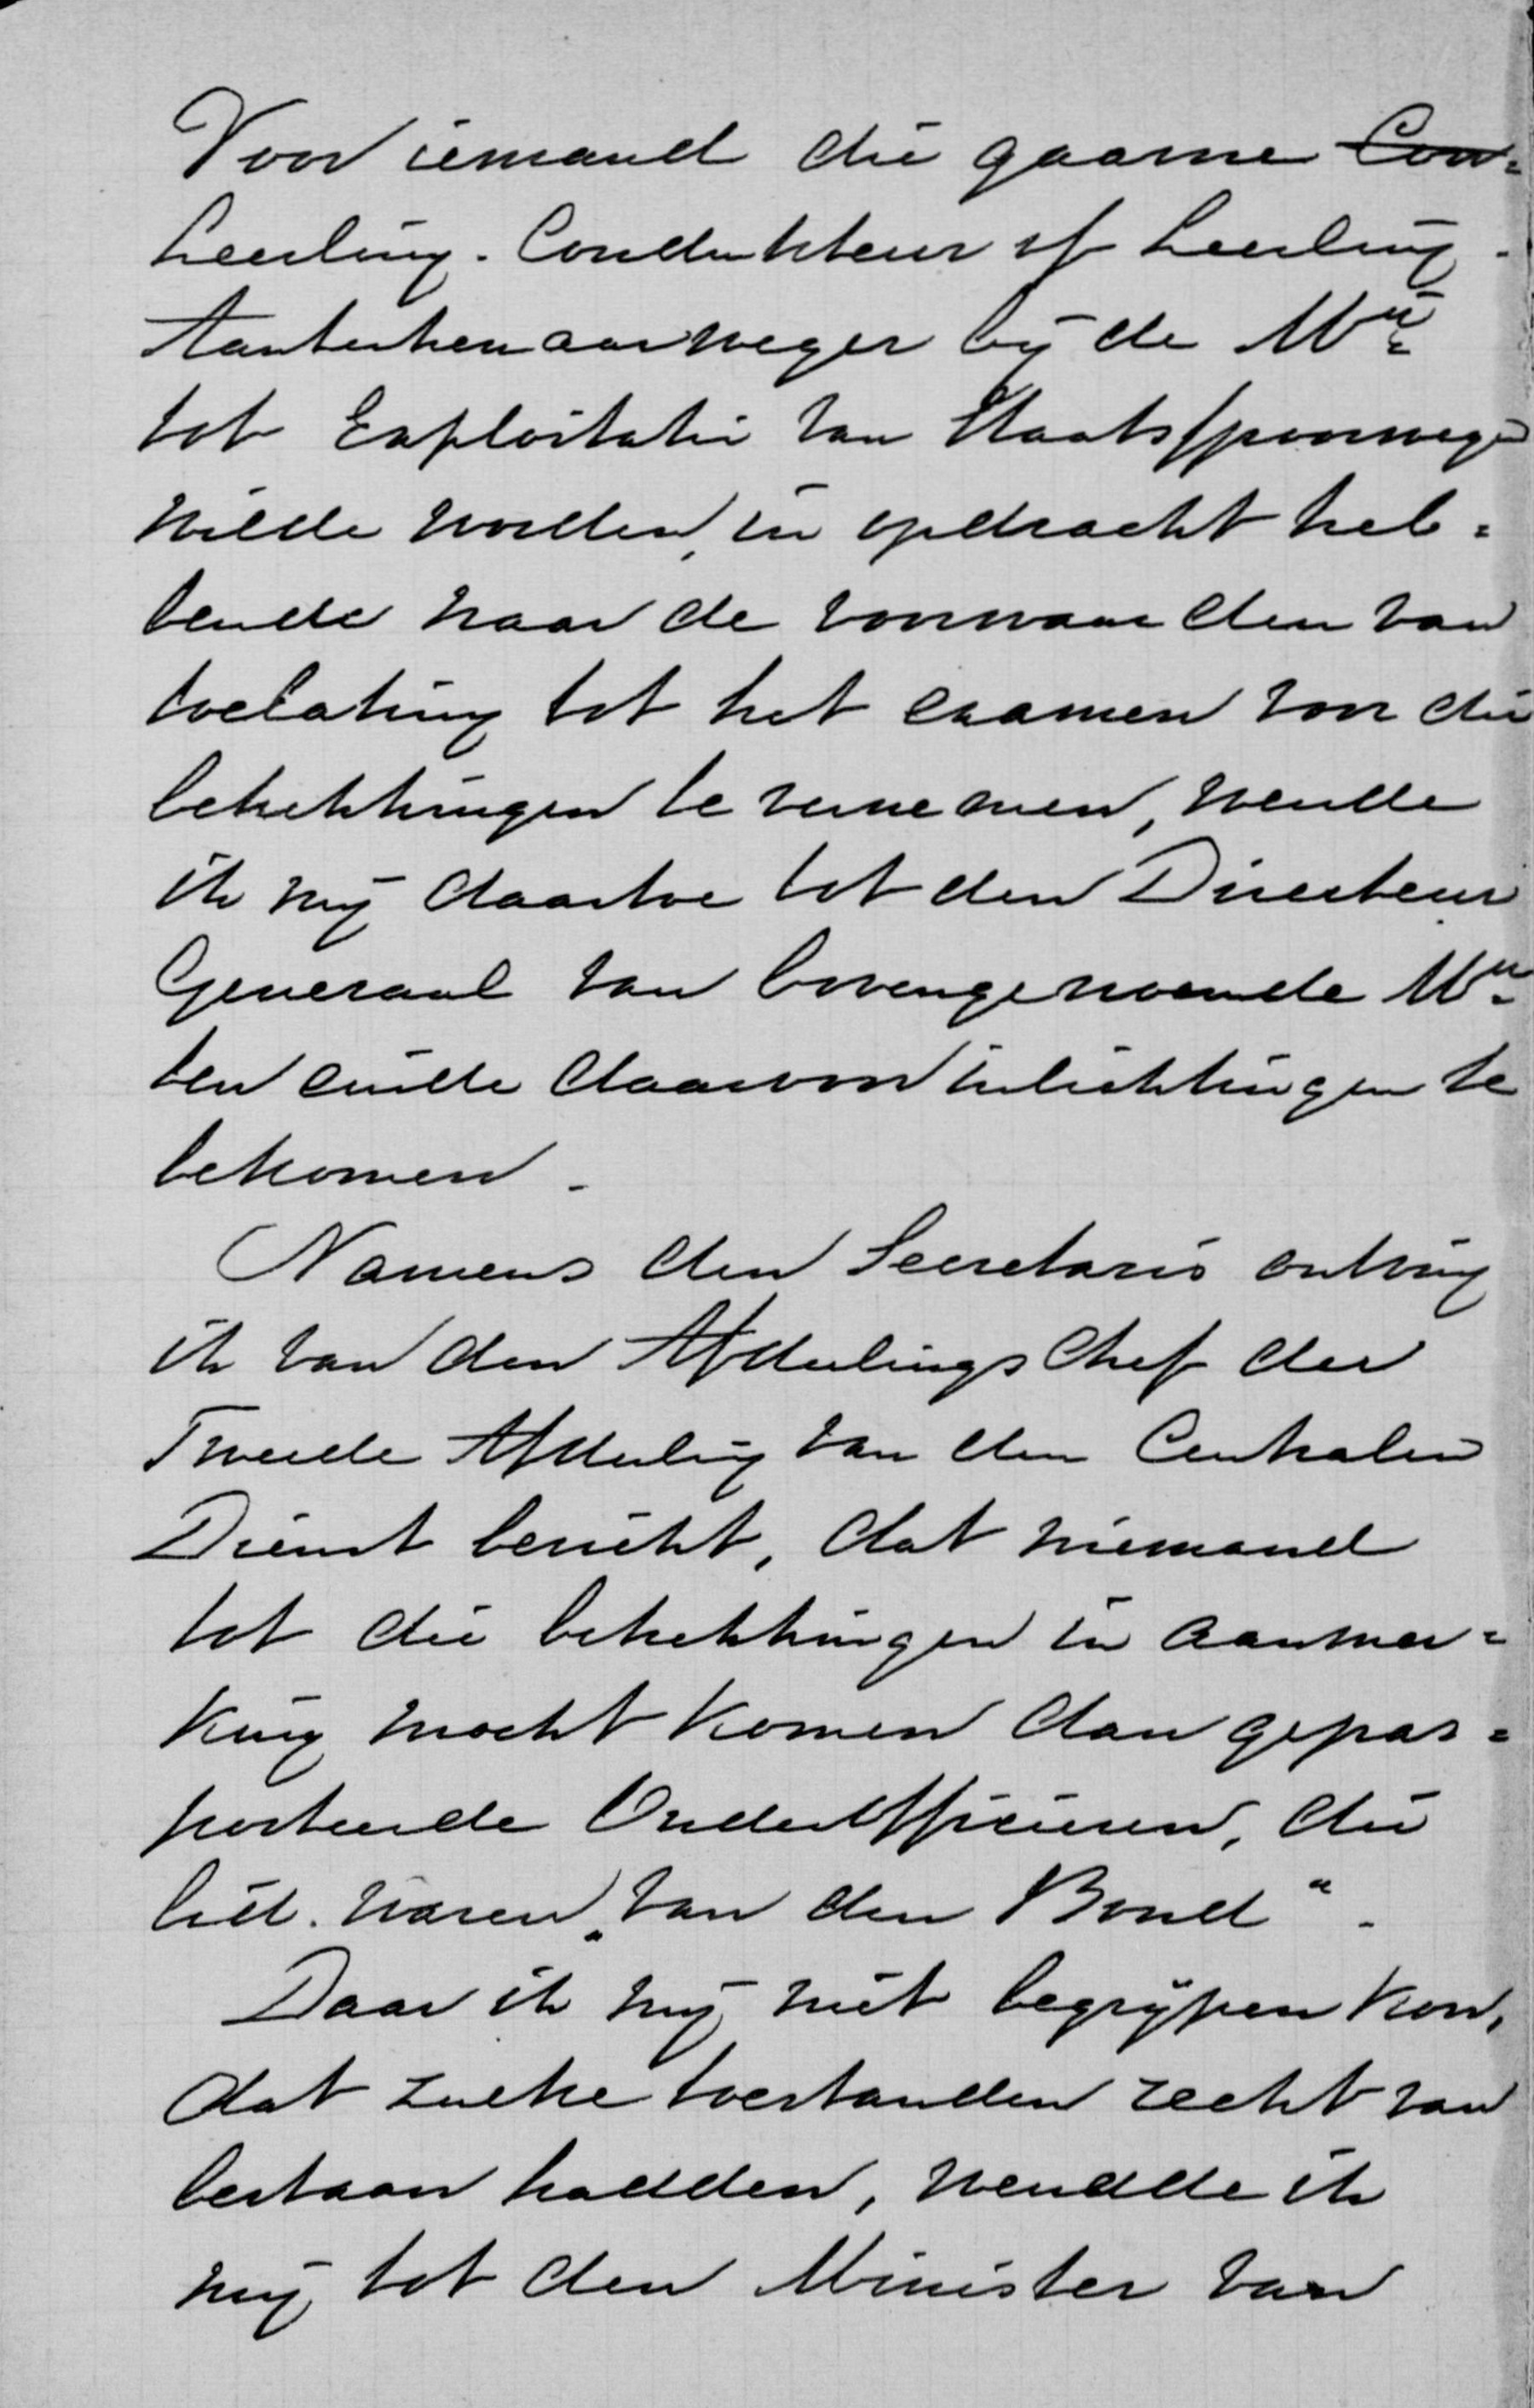 Voor iemand die gaarne Con-
Leerling-Condukteur of Leerling-
Aanteekenaarweger bij de Mij
tot Exploitatie van Staatsspoorwegen
wilde worden, in opdracht heb=
bende naar de voorwaarden van
toelating tot het examen voor die
betrekkingen te vernemen, wendde
ik mij daartoe tot den Directeur
Generaal van bovengenoemde Mij
ten einde daarvoor inlichtingen te
bekomen.
Namens den Secretaris ontving
ik van den Afdeelings Chef der
Tweede Afdeeling van den Centralen
Dienst bericht, dat niemand
tot die betrekkingen in aanmer=
king mocht komen dan gepas=
porteerde Onderofficieren, die
lid waren „van den Bond".
Daar ik mij niet begrijpen kon,
dat zulke toestanden recht van
bestaan hadden, wendde ik
mij tot den Minister van